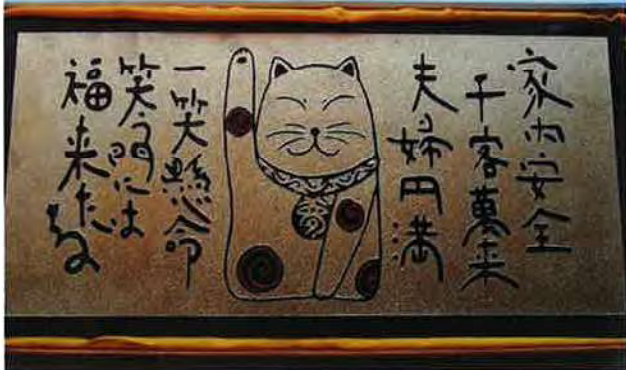 家内安全
千客萬来
夫婦円満
一笑懸命
笑う門には
福来たる